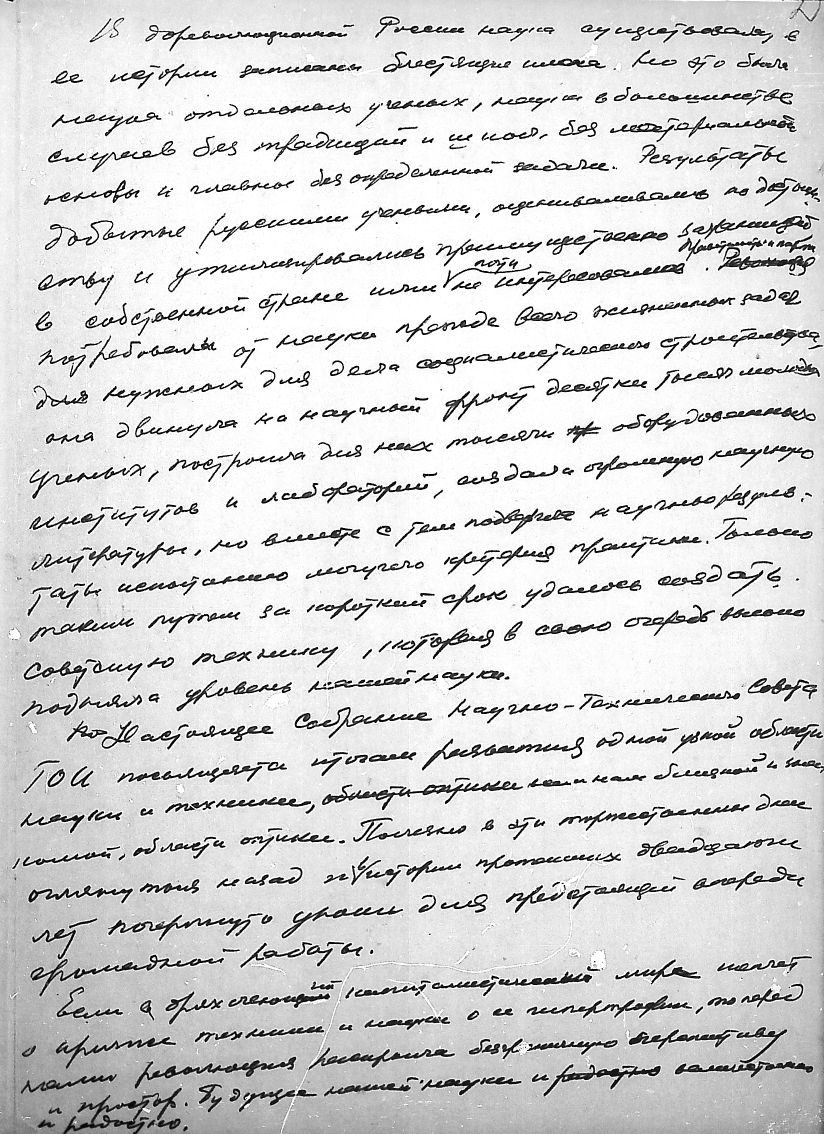 В дореволюционной России наука существовала, в
ее истории записаны блестящие имена. Но это была
наука отдельных ученых, наука в большинстве
случаев без традиций и школ, без материальной
основы и главное без определенной задачи. Результаты
добытые русскими учеными, оценивались по достоин-
ству и утилизировались преимущественно заграницей
в собственной стране ими почти не интересовались.
потребовала от науки прежде всего жизненных задач
нужных для дела социалистического строительства,
она двинула на научный фронт десятки тысяч молодых
ученых, построила для них тысячи оборудованных
институтов и лабораторий, создала огромную научную
литературу, но вместе с тем подвергла научные резуль-
таты испытанию могучего критерия практики. Только
таким путем за короткий срок удалось создать
советскую технику, которая в свою очередь высоко
подняла уровень нашей науки.
Настоящее собрание Научно-Технического Совета
ГОИ посвящается итогам развития одной узкой области
науки и техники, области оптики нам близкой и зна-
комой, области оптики. Полезно в эти торжественные дни
оглянуться назад и в истории протекших двадцати
лет почерпнуть уроки для предстоящей впереди
громадной работы.
Если в дряхлеющем капиталистическом мире кричат
о кризисе техники и науки о ее гипертрофии, то перед
нами революция раскрыла безграничную перспективу
и простор. Будущее нашей науки и радостно величественно
и радостно.